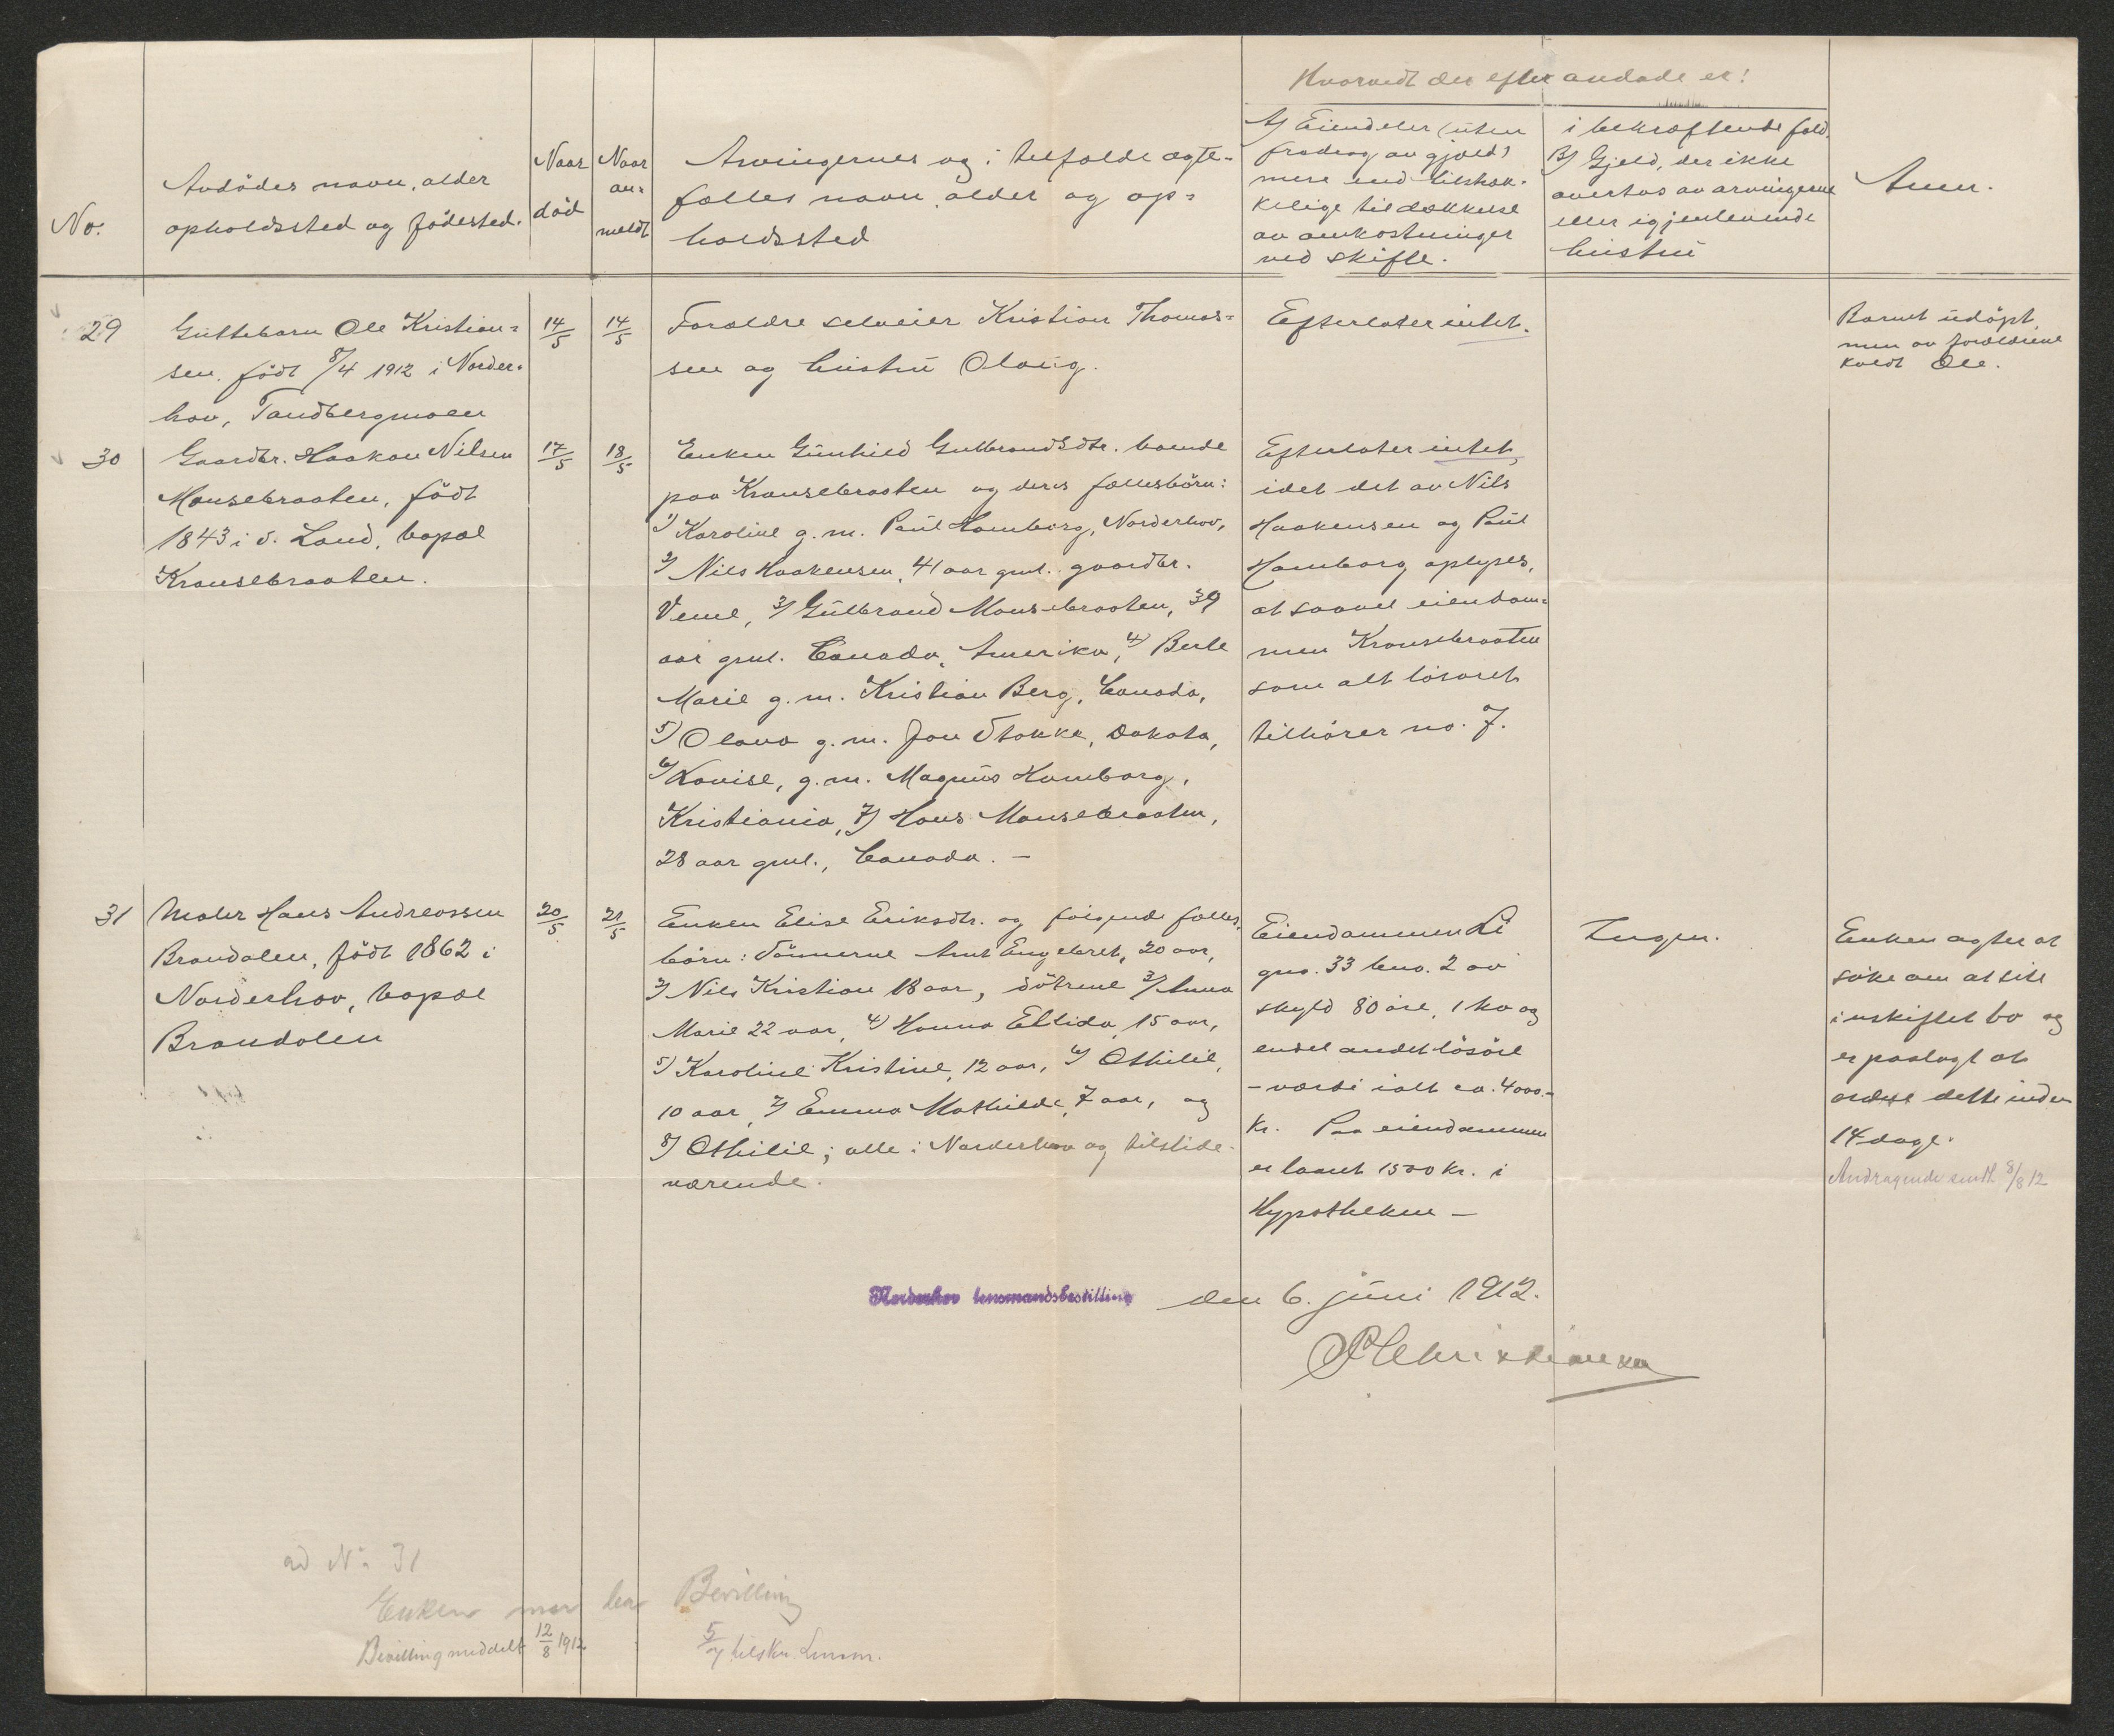 Hvorvidt der efter avdøde er:
No.
Avdödes navn, alder
opholdssted og födested.
Naar
död
Naar
an-
meldt
Arvingernes og i tilfælde ægte-
fælles navn, alder og op-
holdssted
A) Eiendeler (uten
fradrag av gjæld)
mere end tilstræk-
kelige til dækkelse
av omkostninger
ved skifte.
i bekræftende fald.
B) Gjeld, der ikke
overtas av arvingerne
eller igjenlevende
hustru
Anm.
29
Guttebarn Ole Kristian-
sen, födt 8/4 1912 i Norder-
hov, Tandbergmoen
14/5
14/5
Forældre selveier Kristian Thomas-
sen og hustru Olaug.
Efterlater intet.
Barnet udöpt,
men av forældrene
kaldt Ole.
30
Gaardbr. Haakon Nilsen
Mausebraaten, födt
1843 i S. Land, bopæl
Krausebraaten.
17/5
18/5
Enken Gunhild Gulbrandsdtr. boende
paa Krausebraaten og deres fællesbörn:
1) Karoline g.m. Paul Hamborg, Norderhov,
2) Nils Haakensen, 41 aar gml. gaardbr.
Veme, 3) Gulbrand Mausebraaten, 39
aar gml. Canada, Amerika, 4) Berte
Marie g.m. Kristian Berg, Canada,
5) Olava g.m. Jon Stokke, Dakota,
6) Lovise, g.m. Magnus Hamborg,
Kristiania, 7) Hans Mausebraaten,
28 aar gml., Canada. –
Efterlater intet,
idet det av Nils
Haakensen og Paul
Hamborg oplyses,
at saavel eiendom-
men Krausebraaten
som alt lösöret
tilhörer no. 7.
31
Maler Hans Andreassen
Brandalen, födt 1862 i
Norderhov, bopæl
Brandalen
20/5
21/5
Enken Elise Eriksdtr. og følgende fælles-
börn: Sönnerne Arnt Engebret, 20 aar,
2) Nils Kristian 18 aar, dötrene 3) Anna
Marie 22 aar, 4) Hanna Ellida, 15 aar,
5) Karoline Kristine, 12 aar, 6) Othilie,
10 aar, 7) Emma Mathilde, 7 aar, og
8) Othilie; alle i Norderhov og tilstede-
værende.
Eiendommen Li
gno. 33 bno. 2 av
skyld 80 öre, 1 ko og
endel andet lösöre
– værdi ialt ca. 4000.–
kr. Paa eiendommen
er laant 1500 kr. i
Hypotheken –
Ingen.
Enken agter at
söke om at sitte
i uskiftet bo og
er paalagt at
ordne dette inden
14 dage.
Andragende sendt 8/8 12
Norderhov lensmandsbestilling den 6. juni 1912.
P Christiansen
ad No 31
Enken maa ha Bevilling
Bevilling meddelt 12/8 1912
5/7 tilskr. Lensm.